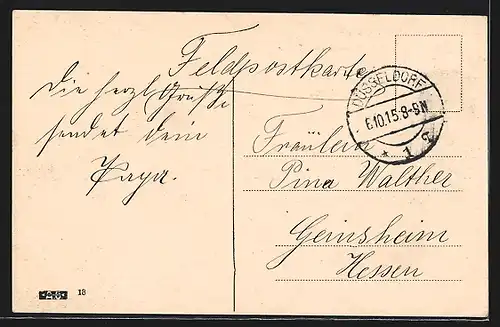 Feldpostkarte
Die herzl Grüße
sendet dein
Papa.
DÜSSELDORF
6.10.15.8-9N
* 1 q
Fräulein
Pina Walther
Geinsheim
Hessen
18